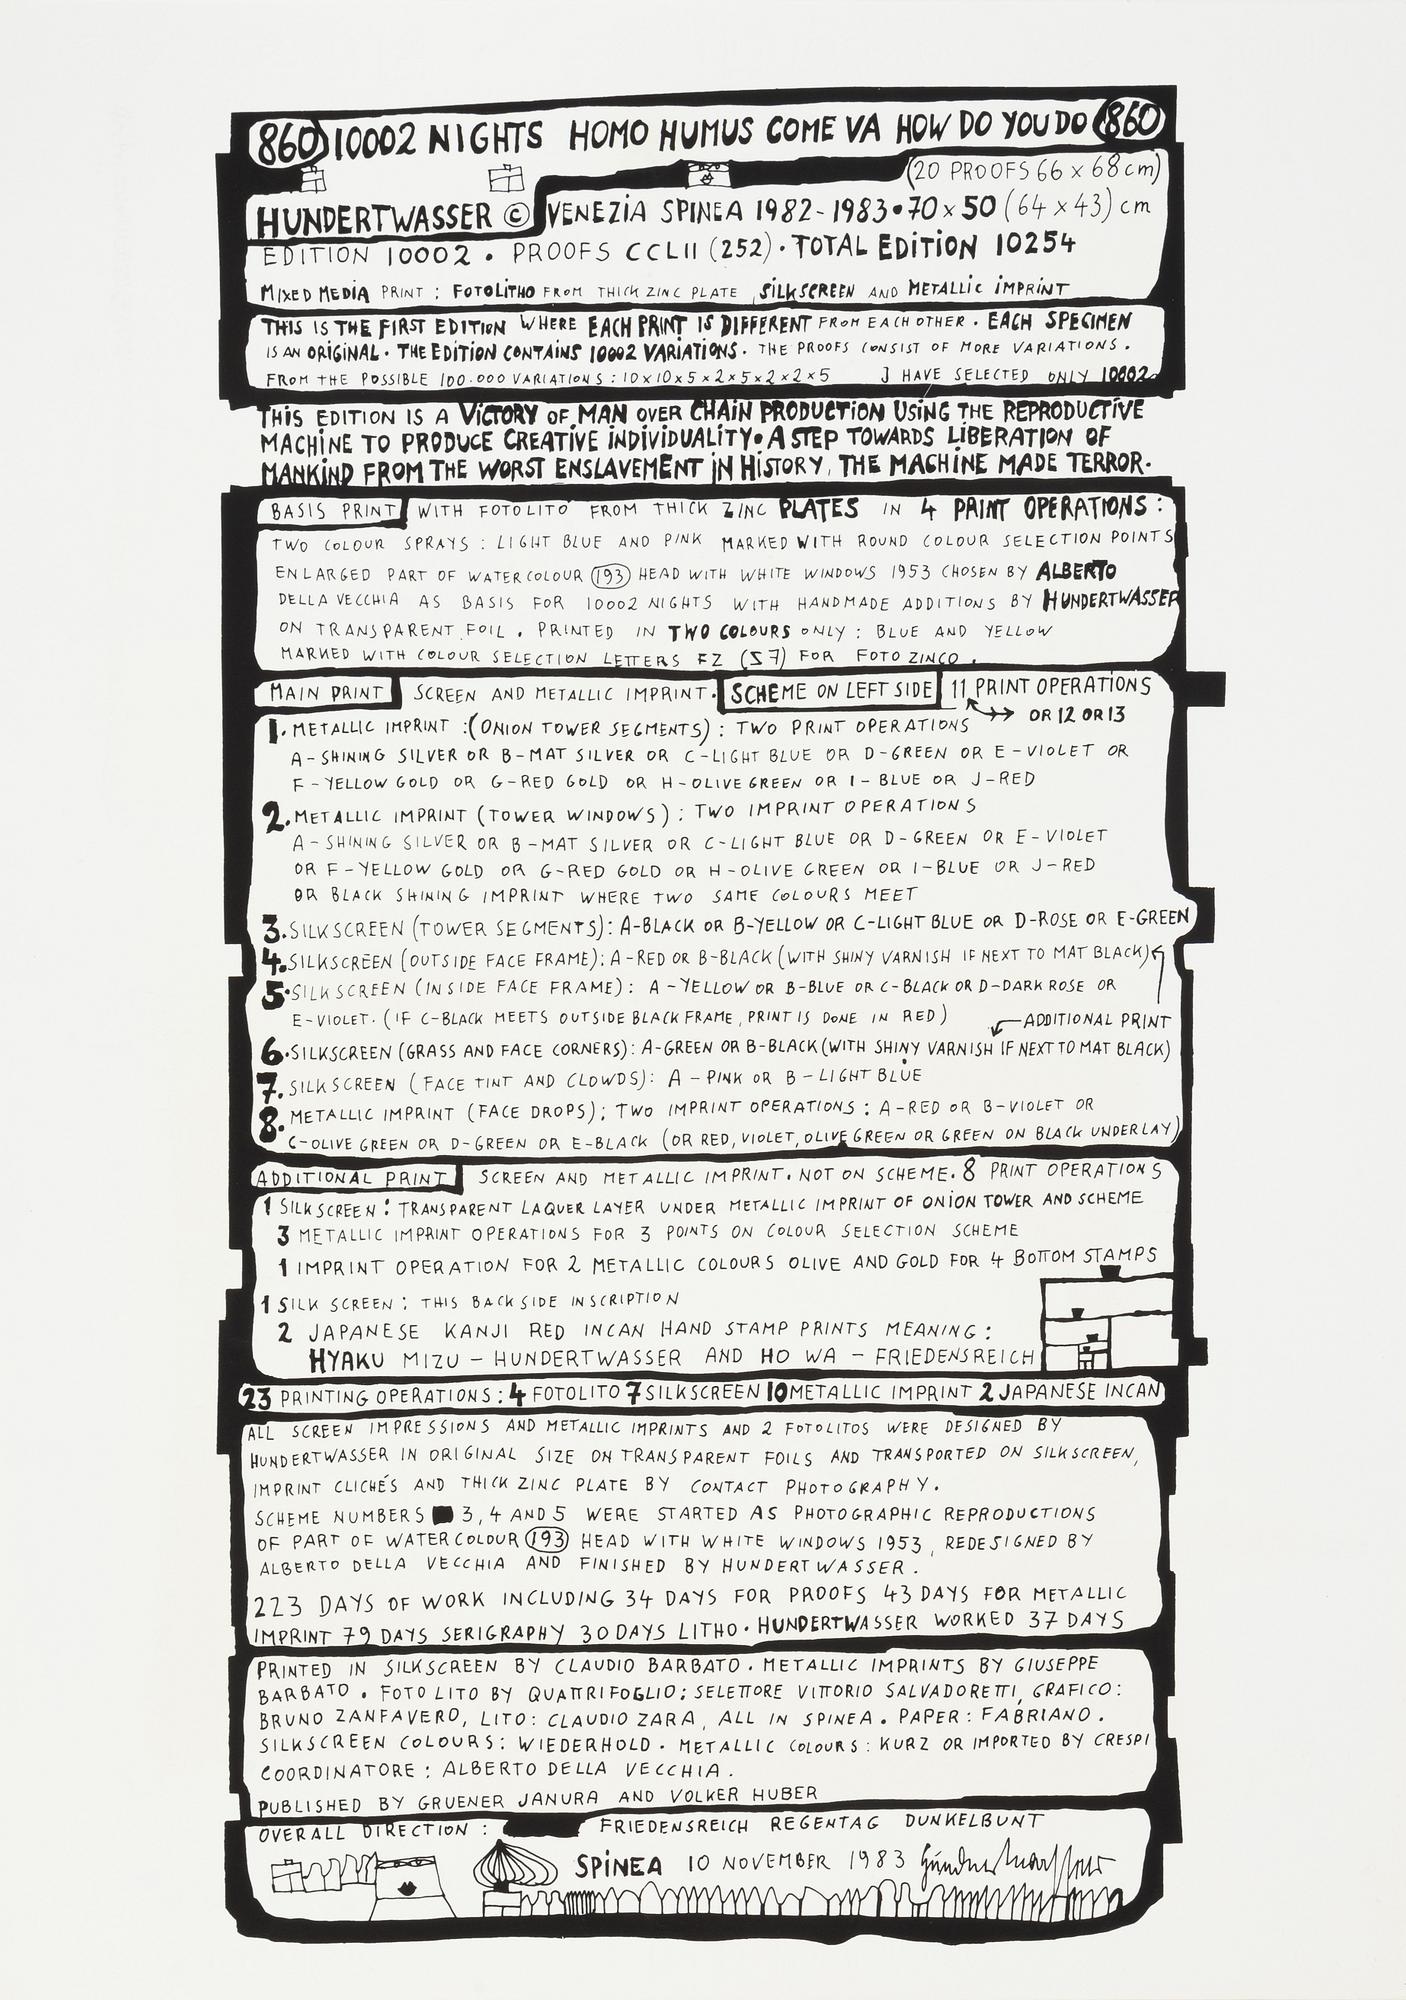 860 10002 NIGHTS HOMO HUMUS COME VA HOW DO YOU DO 860
(20 PROOFS 66 x 68 cm)
HUNDERTWASSER © VENEZIA SPINEA 1982-1983•70 x 50 (64 x 43) cm
EDITION 10002 • PROOFS CCLII (252) • TOTAL EDITION 10254
MIXED MEDIA PRINT : FOTOLITHO FROM THICK ZINC PLATE, SILKSCREEN AND METALLIC IMPRINT
THIS IS THE FIRST EDITION WHERE EACH PRINT IS DIFFERENT FROM EACH OTHER • EACH SPECIMEN
IS AN ORIGINAL • THE EDITION CONTAINS 10002 VARIATIONS • THE PROOFS CONSIST OF MORE VARIATIONS.
FROM THE POSSIBLE 100.000 VARIATIONS : 10x10x5x2x5x2x2x5 J HAVE SELECTED ONLY 10002
THIS EDITION IS A VICTORY OF MAN OVER CHAIN PRODUCTION USING THE REPRODUCTIVE
MACHINE TO PRODUCE CREATIVE INDIVIDUALITY • A STEP TOWARDS LIBERATION OF
MANKIND FROM THE WORST ENSLAVEMENT IN HISTORY, THE MACHINE MADE TERROR.
BASIS PRINT WITH FOTOLITO FROM THICK ZINC PLATES IN 4 PRINT OPERATIONS :
TWO COLOUR SPRAYS : LIGHT BLUE AND PINK MARKED WITH ROUND COLOUR SELECTION POINTS
ENLARGED PART OF WATERCOLOUR 193 HEAD WITH WHITE WINDOWS 1953 CHOSEN BY ALBERTO
DELLA VECCHIA AS BASIS FOR 10002 NIGHTS WITH HANDMADE ADDITIONS BY HUNDERTWASSER
ON TRANSPARENT FOIL. PRINTED IN TWO COLOURS ONLY : BLUE AND YELLOW
MARKED WITH COLOUR SELECTION LETTERS FZ (S7) FOR FOTO ZINCO.
MAIN PRINT SCREEN AND METALLIC IMPRINT. SCHEME ON LEFT SIDE 11 PRINT OPERATIONS
OR 12 OR 13
1. METALLIC IMPRINT : (ONION TOWER SEGMENTS) : TWO PRINT OPERATIONS
A-SHINING SILVER OR B-MAT SILVER OR C-LIGHT BLUE OR D-GREEN OR E-VIOLET OR
F-YELLOW GOLD OR G-RED GOLD OR H-OLIVE GREEN OR I-BLUE OR J-RED
2. METALLIC IMPRINT (TOWER WINDOWS) : TWO IMPRINT OPERATIONS
A-SHINING SILVER OR B-MAT SILVER OR C-LIGHT BLUE OR D-GREEN OR E-VIOLET
OR F-YELLOW GOLD OR G-RED GOLD OR H-OLIVE GREEN OR I-BLUE OR J-RED
OR BLACK SHINING IMPRINT WHERE TWO SAME COLOURS MEET
3. SILKSCREEN (TOWER SEGMENTS): A-BLACK OR B-YELLOW OR C-LIGHT BLUE OR D-ROSE OR E-GREEN
4. SILKSCREEN (OUTSIDE FACE FRAME): A-RED OR B-BLACK (WITH SHINY VARNISH IF NEXT TO MAT BLACK)
5. SILKSCREEN (INSIDE FACE FRAME) : A-YELLOW OR B-BLUE OR C-BLACK OR D-DARK ROSE OR
E-VIOLET. (IF C-BLACK MEETS OUTSIDE BLACK FRAME, PRINT IS DONE IN RED)
ADDITIONAL PRINT
6. SILKSCREEN (GRASS AND FACE CORNERS): A-GREEN OR B-BLACK (WITH SHINY VARNISH IF NEXT TO MAT BLACK)
7. SILKSCREEN (FACE TINT AND CLOWDS): A-PINK OR B-LIGHT BLUE
8. METALLIC IMPRINT (FACE DROPS); TWO IMPRINT OPERATIONS : A-RED OR B-VIOLET OR
C-OLIVE GREEN OR D-GREEN OR E-BLACK (OR RED, VIOLET, OLIVE GREEN OR GREEN ON BLACK UNDERLAY)
ADDITIONAL PRINT SCREEN AND METALLIC IMPRINT. NOT ON SCHEME. 8 PRINT OPERATIONS
1 SILKSCREEN : TRANSPARENT LAQUER LAYER UNDER METALLIC IMPRINT OF ONION TOWER AND SCHEME
3 METALLIC IMPRINT OPERATIONS FOR 3 POINTS ON COLOUR SELECTION SCHEME
1 IMPRINT OPERATION FOR 2 METALLIC COLOURS OLIVE AND GOLD FOR 4 BOTTOM STAMPS
1 SILK SCREEN : THIS BACKSIDE INSCRIPTION
2 JAPANESE KANJI RED INCAN HAND STAMP PRINTS MEANING :
HYAKU MIZU - HUNDERTWASSER AND HO WA - FRIEDENSREICH
23 PRINTING OPERATIONS : 4 FOTOLITO 7 SILKSCREEN 10 METALLIC IMPRINT 2 JAPANESE INCAN
ALL SCREEN IMPRESSIONS AND METALLIC IMPRINTS AND 2 FOTOLITOS WERE DESIGNED BY
HUNDERTWASSER IN ORIGINAL SIZE ON TRANSPARENT FOILS AND TRANSPORTED ON SILKSCREEN,
IMPRINT CLICHÉS AND THICK ZINC PLATE BY CONTACT PHOTOGRAPHY.
SCHEME NUMBERS 3, 4 AND 5 WERE STARTED AS PHOTOGRAPHIC REPRODUCTIONS
OF PART OF WATERCOLOUR 193 HEAD WITH WHITE WINDOWS 1953, REDESIGNED BY
ALBERTO DELLA VECCHIA AND FINISHED BY HUNDERTWASSER.
223 DAYS OF WORK INCLUDING 34 DAYS FOR PROOFS 43 DAYS FOR METALLIC
IMPRINT 79 DAYS SERIGRAPHY 30 DAYS LITHO • HUNDERTWASSER WORKED 37 DAYS
PRINTED IN SILKSCREEN BY CLAUDIO BARBATO. METALLIC IMPRINTS BY GIUSEPPE
BARBATO. FOTOLITO BY QUATTRIFOGLIO; SELETTORE VITTORIO SALVADORETTI, GRAFICO:
BRUNO ZANFAVERO, LITO: CLAUDIO ZARA, ALL IN SPINEA. PAPER : FABRIANO.
SILKSCREEN COLOURS: WIEDERHOLD. METALLIC COLOURS: KURZ OR IMPORTED BY CRESPI
COORDINATORE : ALBERTO DELLA VECCHIA.
PUBLISHED BY GRUENER JANURA AND VOLKER HUBER
OVERALL DIRECTION : FRIEDENSREICH REGENTAG DUNKELBUNT
SPINEA 10 NOVEMBER 1983 Hundertwasser